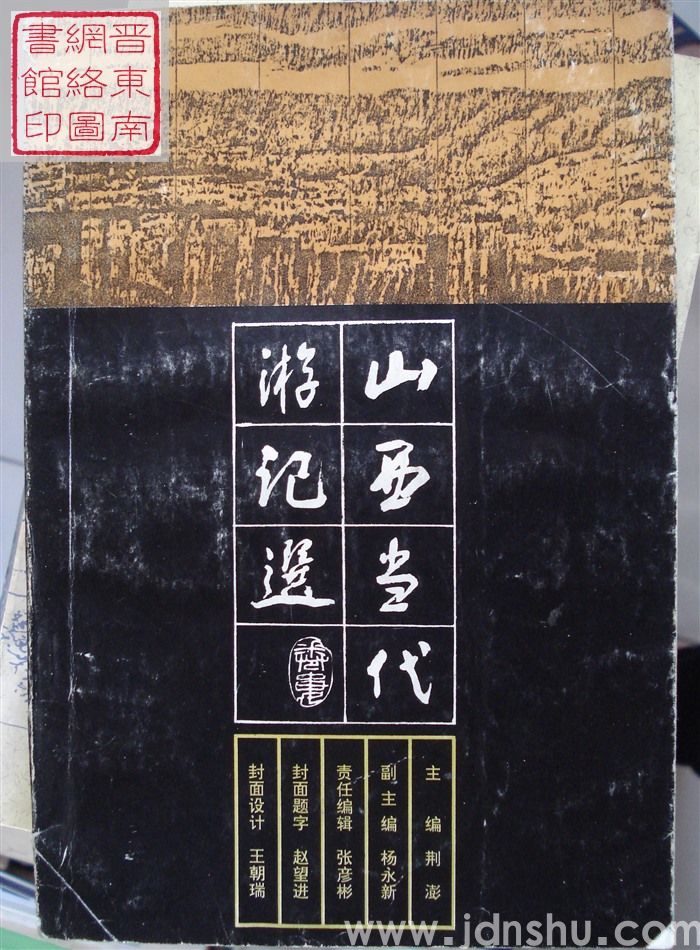 晋東南
網絡圖
書館印
山西当代
游记選
主编 荆澎
副主编 杨永新
责任编辑 张彦彬
封面题字 赵望进
封面设计 王朝瑞
www.jdnshu.com